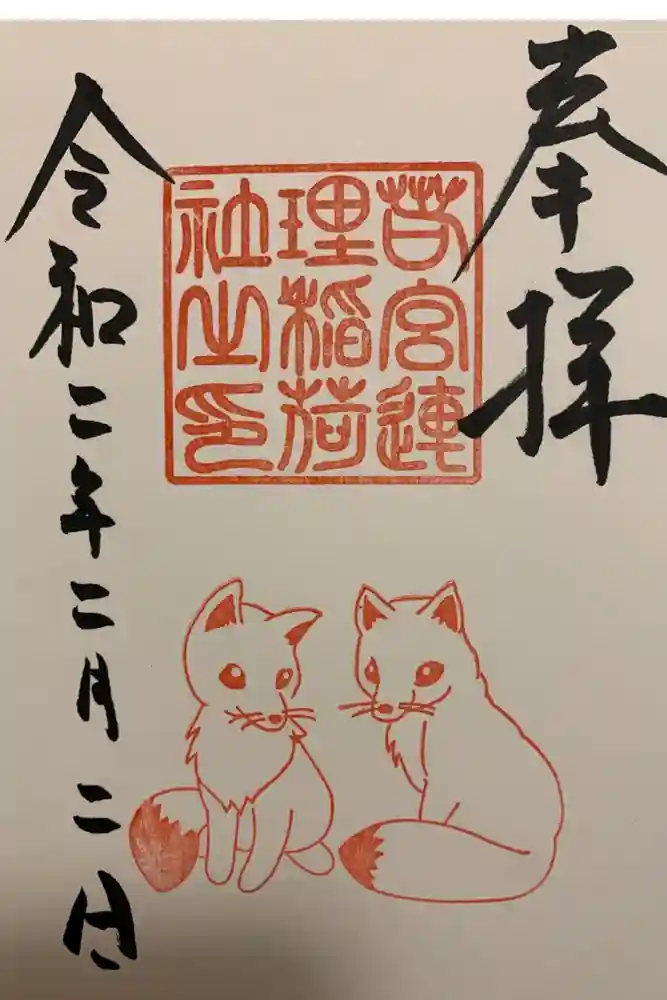 奉拝
若宮連
理稲荷
社之印
令和二年二月二日